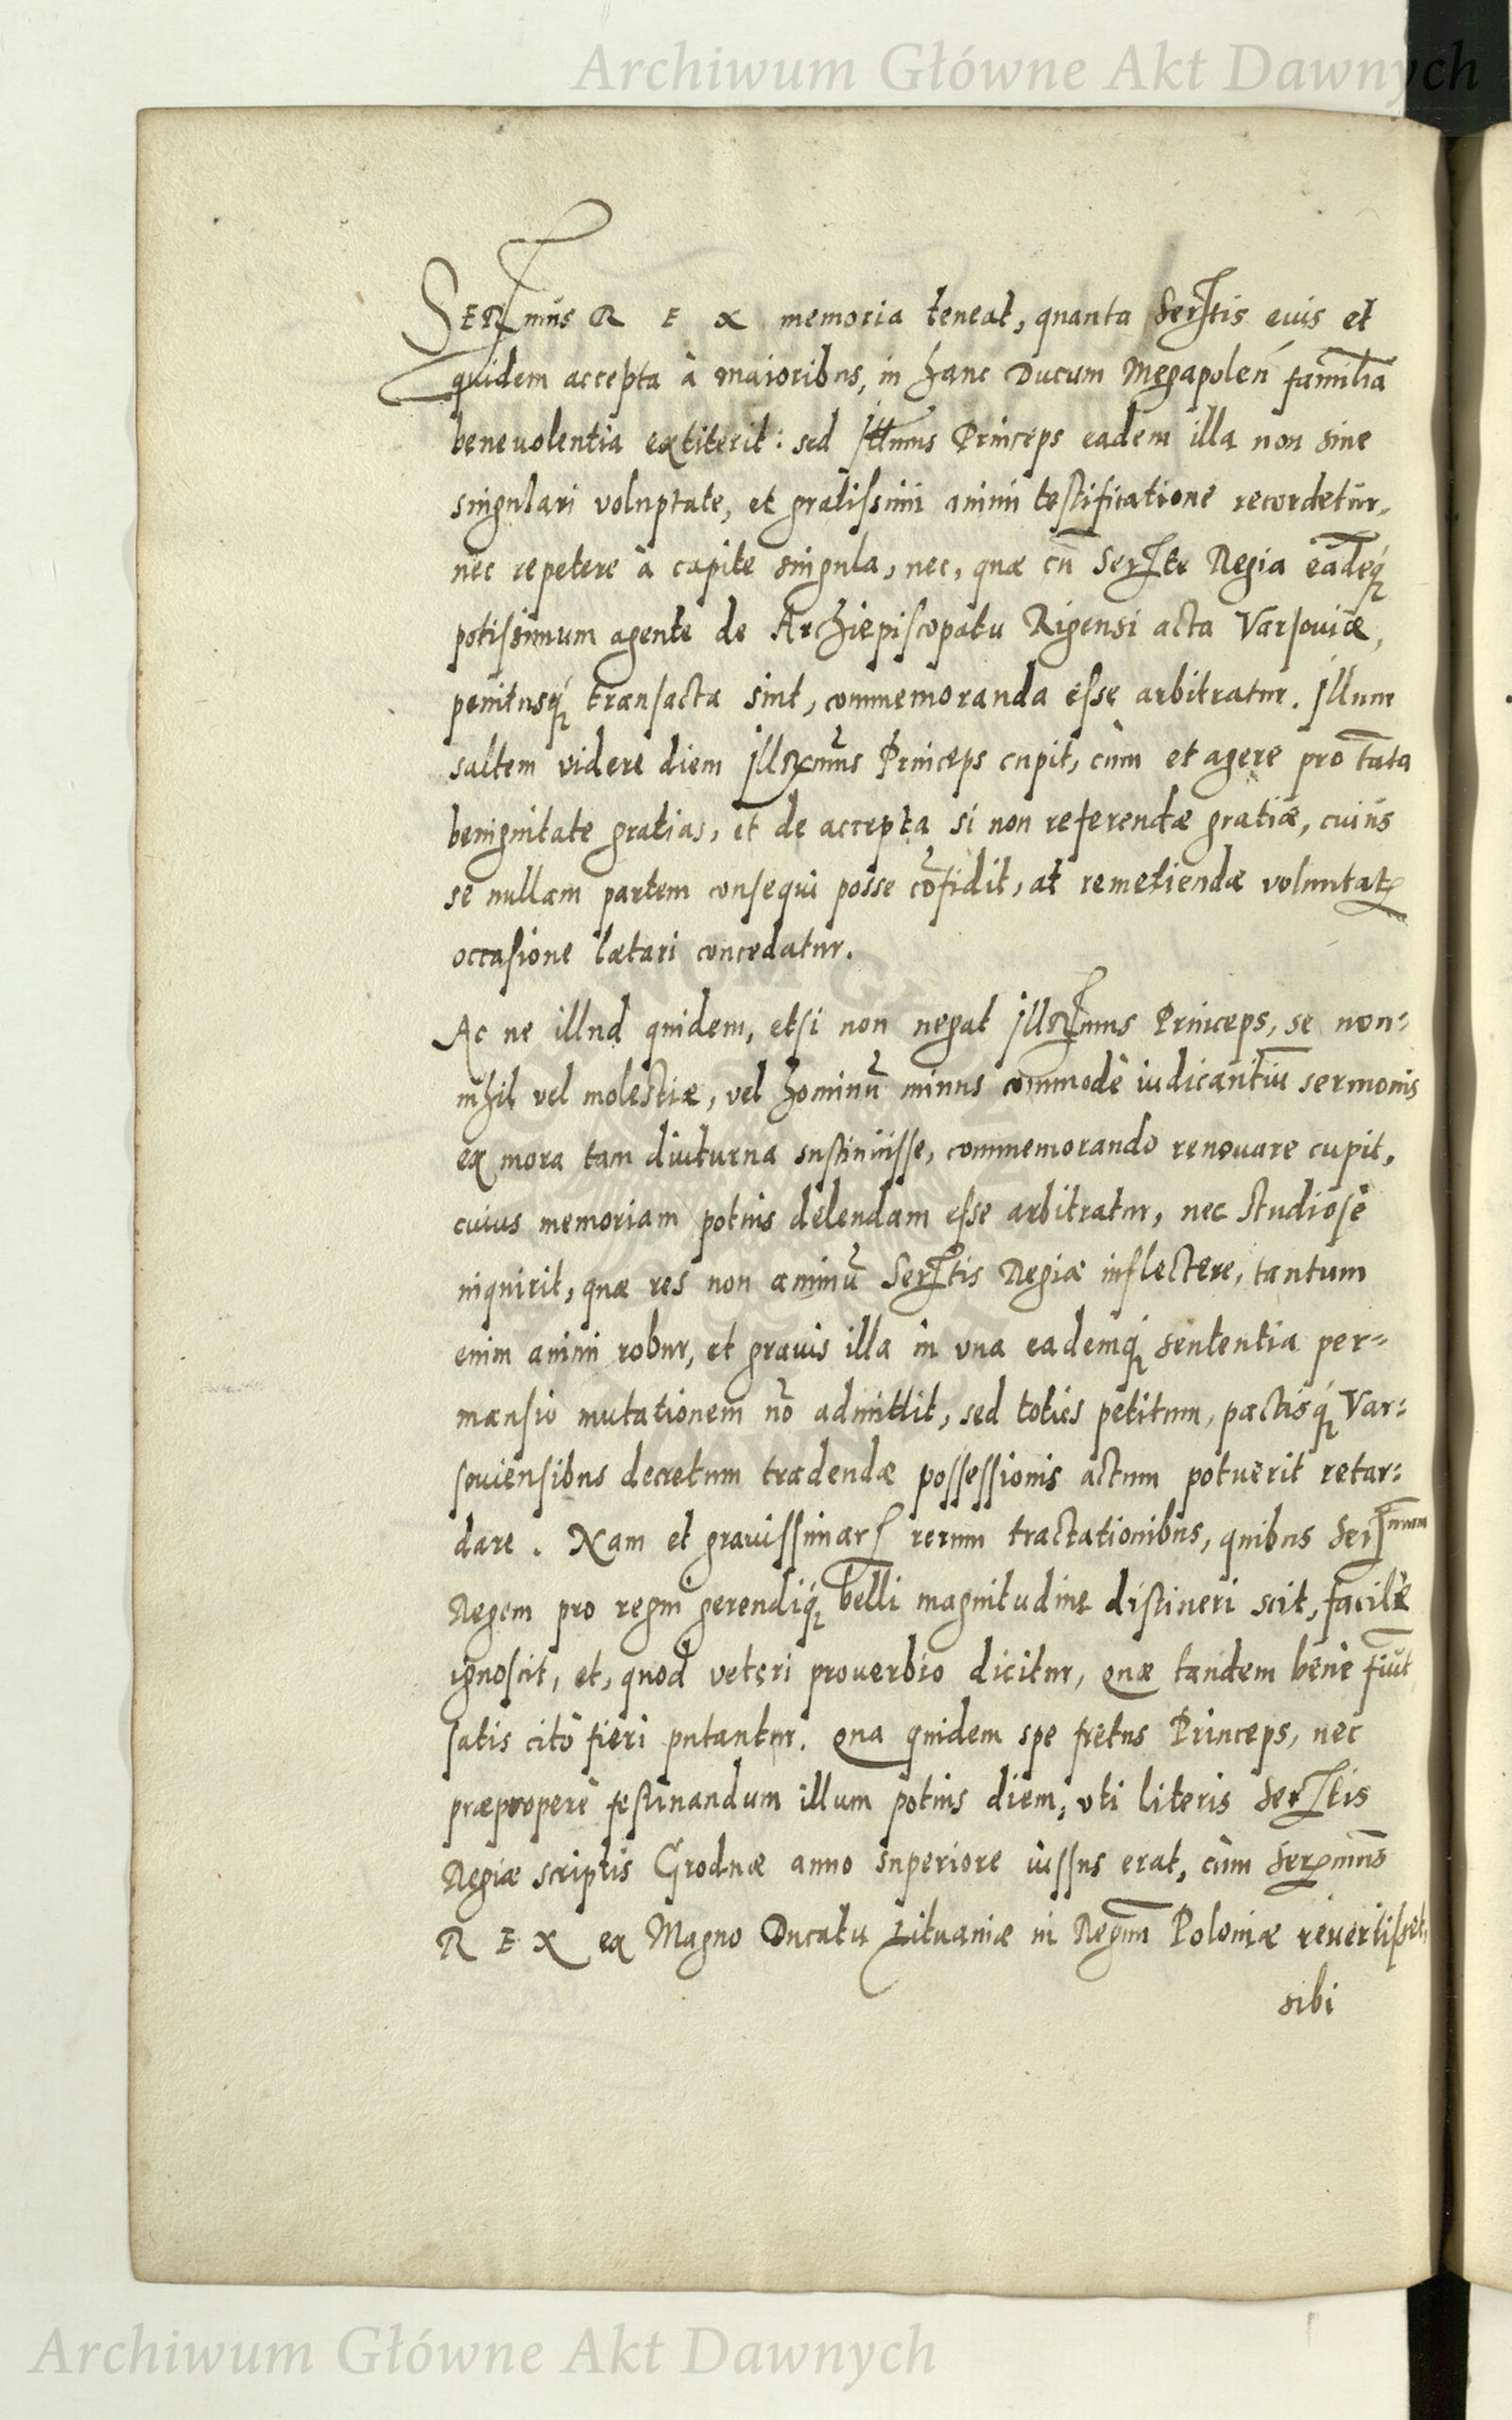 Archiwum Główne Akt Dawnych
SERmus REX memoria teneat, quanta Sertis eius et
quidem accepta à maioribus, in hanc Ducum Megapolen̄ familiā
beneuolentia extiterit: sed Illmus Princeps eadem illa non sine
singulari voluptate, et gratissimi animi testificatione recordetur,
nec repetere à capite singula, nec, quæ cū Serte Regia eādeq́
potissimum agente de Archiepiscopatu Rigensi acta Varsouiæ,
penitusq́ transacta sint, commemoranda esse arbitratur. Illum
saltem videre diem Illrmus Princeps cupit, cùm et agere pro tāta
benignitate gratias, et de accepta si non referendæ gratiæ, cuius
se nullam partem consequi posse cōfidit, at remetiendæ voluntatis
occasione lætari concedatur.
Ac ne illud quidem, etsi non negat Illrmus Princeps, se non=
nihil vel molestiæ, vel hominū minus commodè iudicantiū sermonis
ex mora tam diuturna sustinuisse, commemorando renouare cupit,
cuius memoriam potius delendam esse arbitratur, nec studiosè
inquirit, quæ res non animū Sertis Regiæ inflectere, tantum
enim animi robur, et grauis illa in vna eademq́ sententia per=
mansio mutationem nō admittit, sed toties petitum, pactisq́ Var=
souiensibus decretum tradendæ possessionis actum potuerit retar=
dare. Nam et grauissimar rerum tractationibus, quibus Sermum
Regem pro regni gerendiq́ belli magnitudine distineri scit, facilè
ignoscit, et, quod veteri prouerbio dicitur, Quæ tandem benè fiūt
satis citò fieri putantur. Qua quidem spe fretus Princeps, nec
præproperè festinandum illum potius diem, vti literis Sertis
Regiæ scriptis Grodnæ anno superiore iussus erat, cùm Sermus
REX ex Magno Ducatu Lituaniæ in Regnū Poloniæ reuertisset,
sibi
Archiwum Główne Akt Dawnych